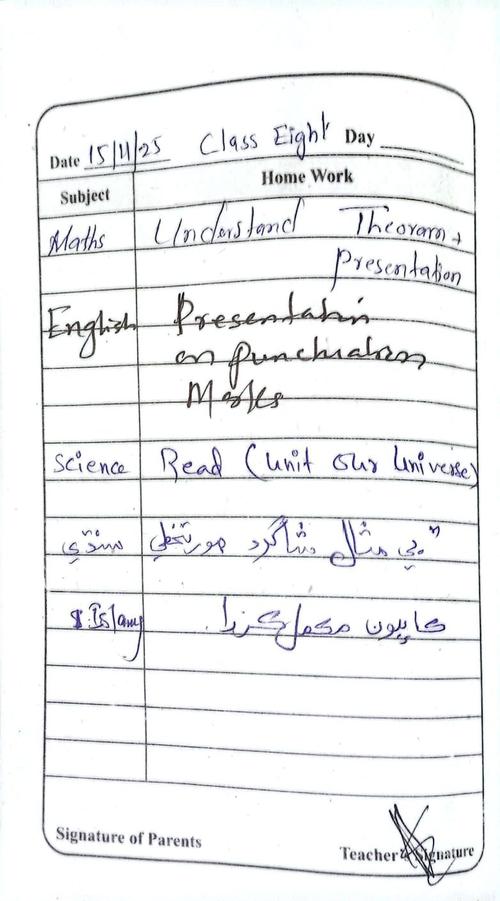 Date 15/11/25 Class Eight Day
Subject Home Work
Maths Understand Theoram +
Presentation
English Presentation
on punctuation
Marks
Science Read (Unit Our Universe)
سنڌي مثالي شاگرد
Islamy ڪاپيون مڪمل ڪرڻ
Signature of Parents
Teacher's Signature